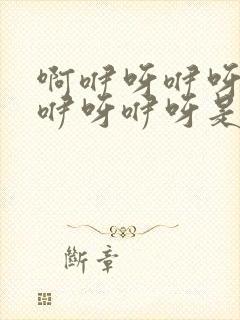 啊咿呀咿呀
咿呀咿呀是
斷章